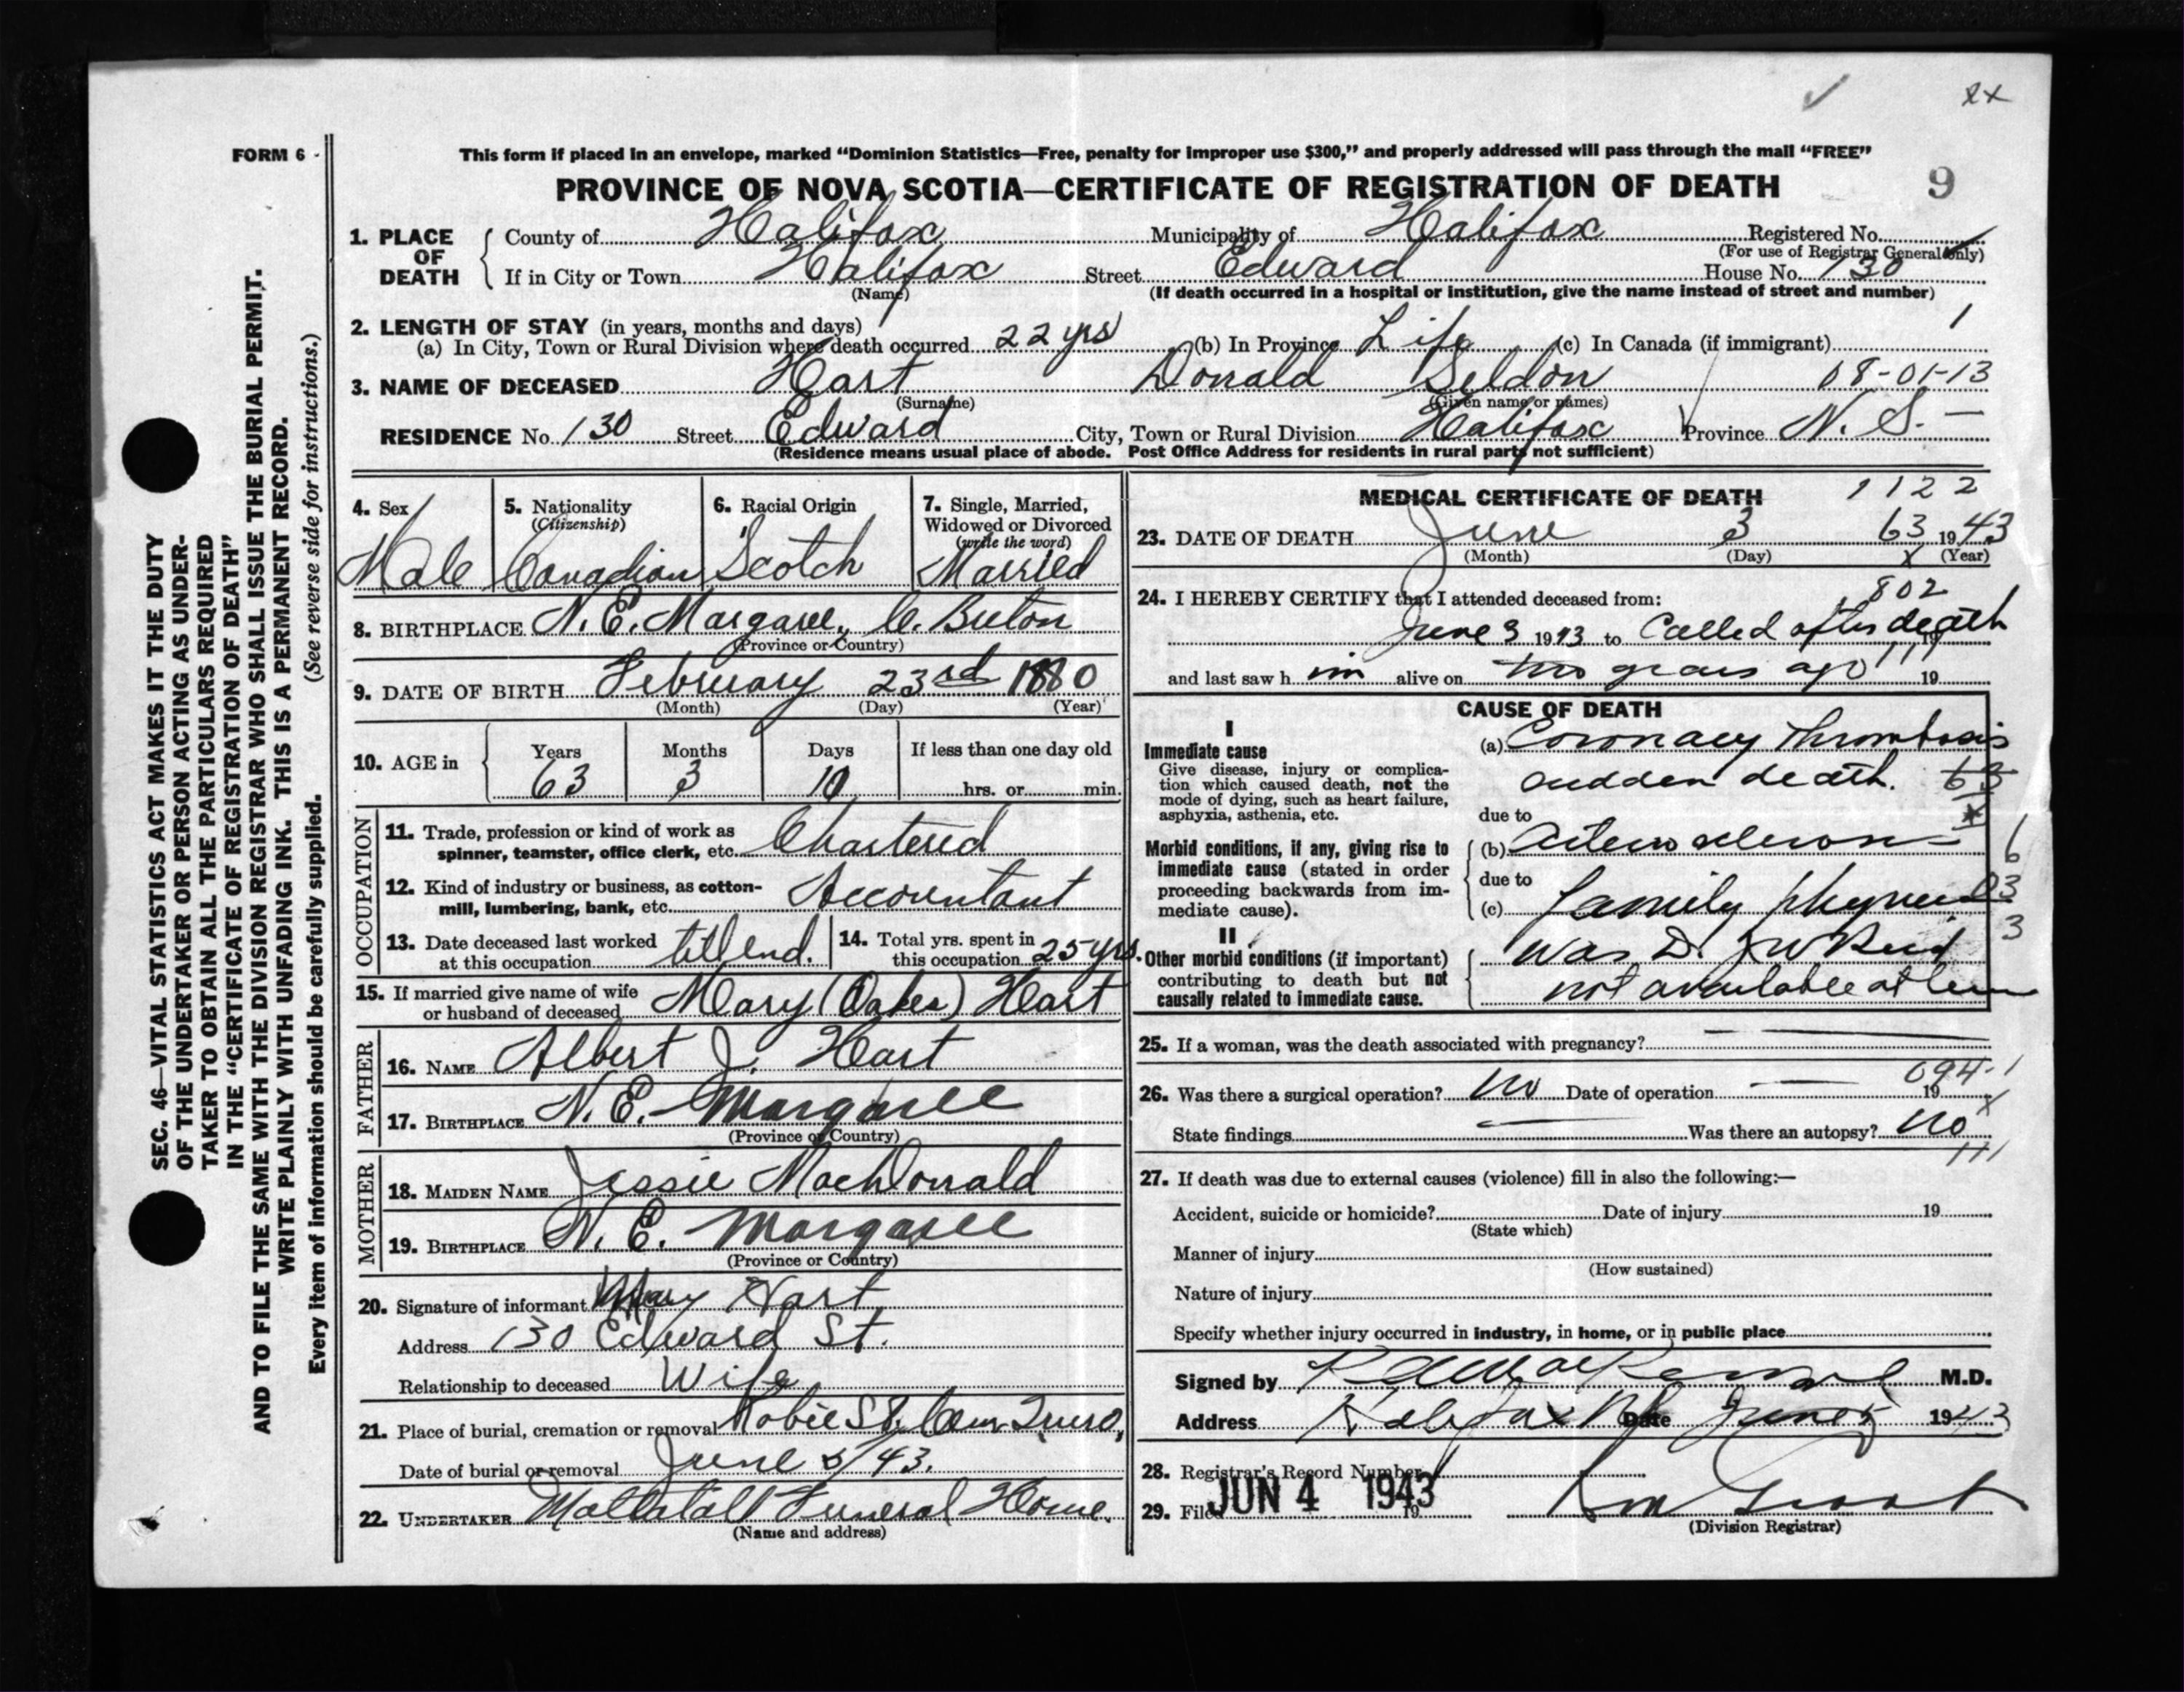 2x
FORM 6
This form if placed in an envelope, marked "Dominion Statistics—Free, penalty for improper use $300," and properly addressed will pass through the mail "FREE"
PROVINCE OF NOVA SCOTIA—CERTIFICATE OF REGISTRATION OF DEATH 9
1. PLACE OF DEATH { County of Halifax Municipality of Halifax Registered No.
(For use of Registrar General only)
If in City or Town Halifax Street Edward House No. 130
(Name) (If death occurred in a hospital or institution, give the name instead of street and number)
2. LENGTH OF STAY (in years, months and days) 1
(a) In City, Town or Rural Division where death occurred 22 yrs (b) In Province Life (c) In Canada (if immigrant)
3. NAME OF DECEASED Hart Donald Seldon 08-01-13
(Surname) (Given name or names)
RESIDENCE No. 130 Street Edward City, Town or Rural Division Halifax Province N. S. —
(Residence means usual place of abode. Post Office Address for residents in rural parts not sufficient)
4. Sex Male
5. Nationality (Citizenship) Canadian
6. Racial Origin Scotch
7. Single, Married, Widowed or Divorced (write the word) Married
8. BIRTHPLACE N. E. Margaree, C. Breton
(Province or Country)
9. DATE OF BIRTH February 23rd 1880
(Month) (Day) (Year)
10. AGE in { Years 63 Months 3 Days 10 If less than one day old hrs. or min.
OCCUPATION
11. Trade, profession or kind of work as
spinner, teamster, office clerk, etc. Chartered
12. Kind of industry or business, as cotton-
mill, lumbering, bank, etc. Accountant
13. Date deceased last worked
at this occupation till end.
14. Total yrs. spent in
this occupation 25 yrs.
15. If married give name of wife
or husband of deceased Mary (Oakes) Hart
FATHER
16. NAME Albert J. Hart
17. BIRTHPLACE N. E. Margaree
(Province or Country)
MOTHER
18. MAIDEN NAME Jessie MacDonald
19. BIRTHPLACE N. E. Margaree
(Province or Country)
20. Signature of informant Mary Hart
Address 130 Edward St.
Relationship to deceased Wife
21. Place of burial, cremation or removal Robie St. Cem Truro,
Date of burial or removal June 5/43.
22. UNDERTAKER Mattatall Funeral Home.
(Name and address)
MEDICAL CERTIFICATE OF DEATH 1122
23. DATE OF DEATH June 3 63 1943
(Month) (Day) x (Year)
24. I HEREBY CERTIFY that I attended deceased from: 802
June 3 1943 to Called after death 19
and last saw h im alive on two years ago 111 19
CAUSE OF DEATH
I
Immediate cause
Give disease, injury or complica-
tion which caused death, not the
mode of dying, such as heart failure,
asphyxia, asthenia, etc.
(a) Coronary Thrombosis
sudden death. 63
due to
Morbid conditions, if any, giving rise to
immediate cause (stated in order
proceeding backwards from im-
mediate cause).
(b)
due to
(c) family
II
Other morbid conditions (if important)
contributing to death but not
causally related to immediate cause.
was D.
not available at
6
03
3
25. If a woman, was the death associated with pregnancy?
094-1
26. Was there a surgical operation? no Date of operation 19 x
State findings Was there an autopsy? no
111
27. If death was due to external causes (violence) fill in also the following:—
Accident, suicide or homicide? Date of injury 19
(State which)
Manner of injury
(How sustained)
Nature of injury
Specify whether injury occurred in industry, in home, or in public place
Signed by M.D.
Address Halifax Date June 5 1943
28. Registrar's Record Number
29. Filed JUN 4 1943 19
(Division Registrar)
SEC. 46—VITAL STATISTICS ACT MAKES IT THE DUTY
OF THE UNDERTAKER OR PERSON ACTING AS UNDER-
TAKER TO OBTAIN ALL THE PARTICULARS REQUIRED
IN THE "CERTIFICATE OF REGISTRATION OF DEATH"
AND TO FILE THE SAME WITH THE DIVISION REGISTRAR WHO SHALL ISSUE THE BURIAL PERMIT.
WRITE PLAINLY WITH UNFADING INK. THIS IS A PERMANENT RECORD.
Every item of information should be carefully supplied. (See reverse side for instructions.)